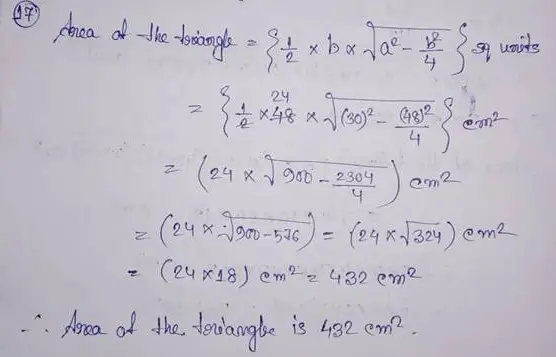 17
Area of the triangle = {1/2 × b × √(a² − b²/4)} sq units
= {1/2 × 48 24 × √((30)² − (48)²/4)} cm²
= (24 × √(900 − 2304/4)) cm²
= (24 × √(900−576)) = (24 × √324) cm²
= (24×18) cm² = 432 cm²
∴ Area of the triangle is 432 cm².